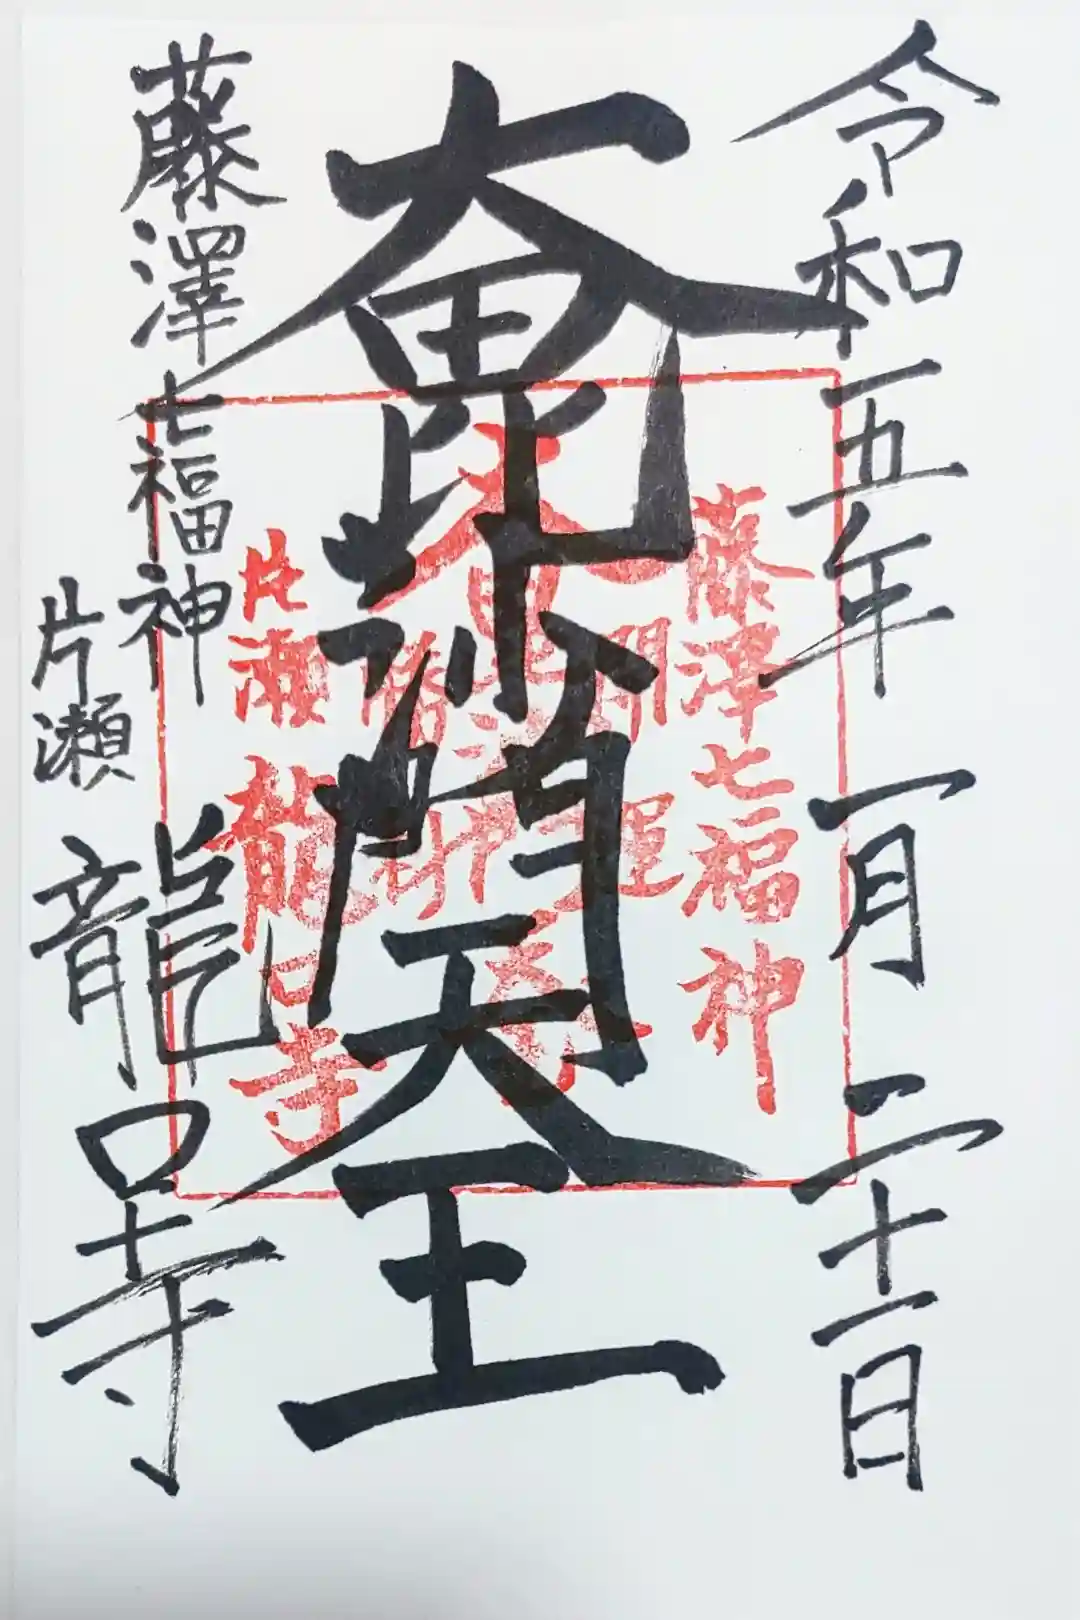 令和五年一月二十一日
大毘沙門天王
藤澤七福神
片瀬龍口寺
藤澤七福神
片瀬龍口寺